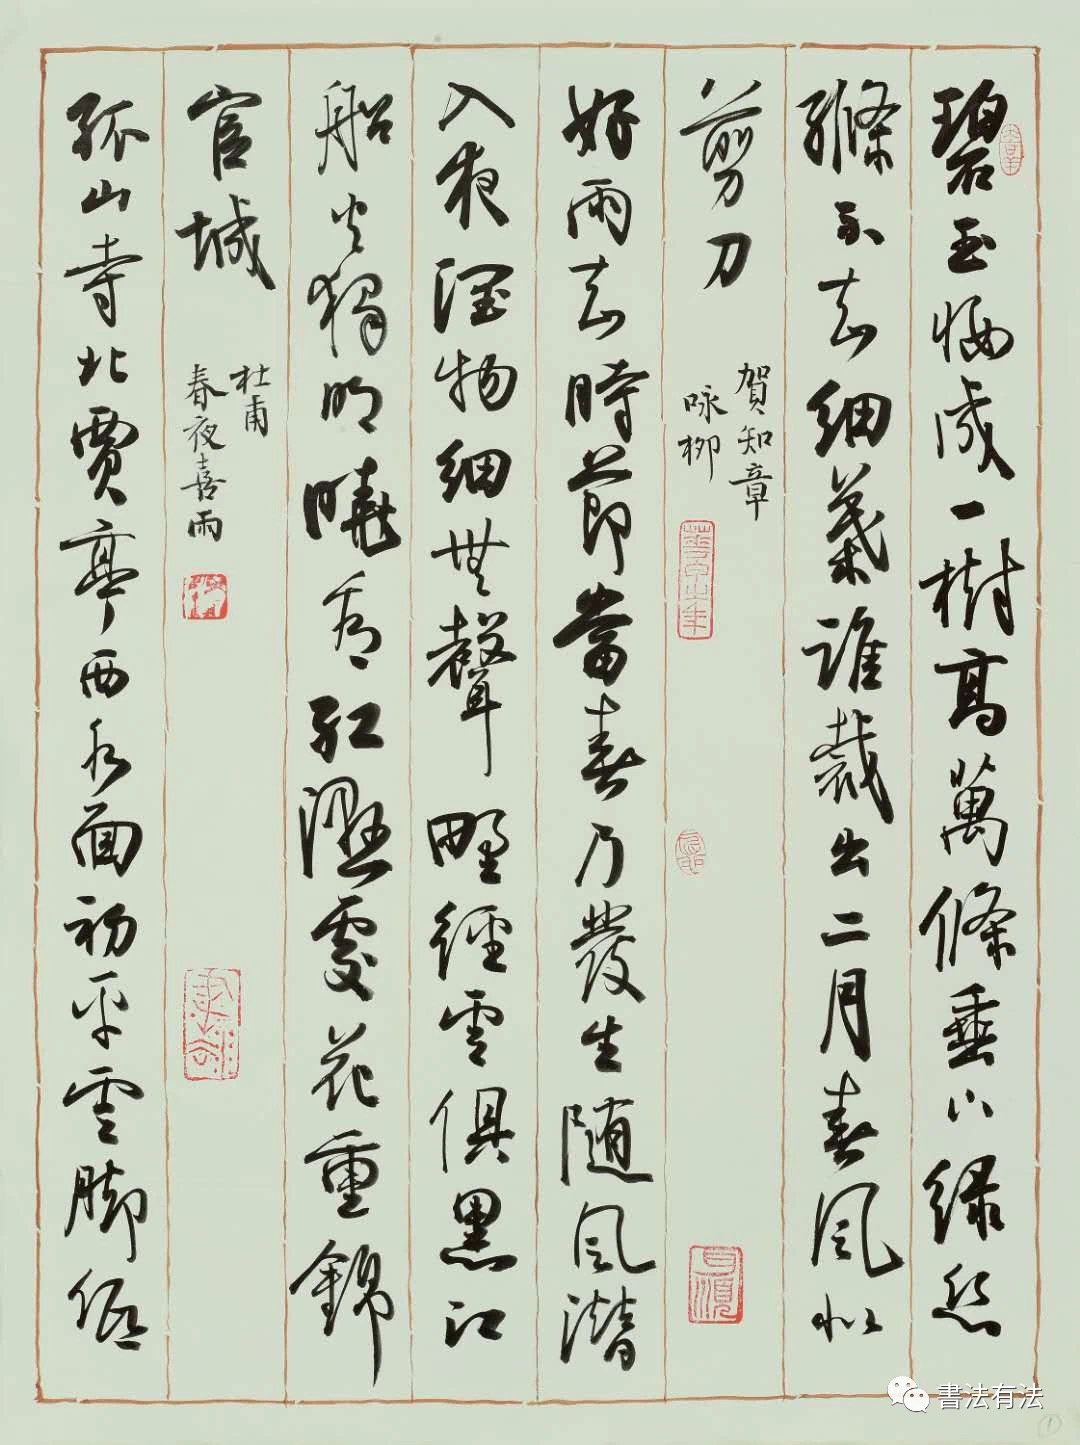 碧玉妝成一樹高萬條垂下綠絲
絛不知細葉誰裁出二月春風似
剪刀
賀知章
咏柳
好雨知時節當春乃發生随風潛
入夜潤物細無聲野徑雲俱黑江
船火獨明曉看紅濕處花重錦
官城
杜甫
春夜喜雨
孤山寺北賈亭西水面初平雲腳低
書法有法